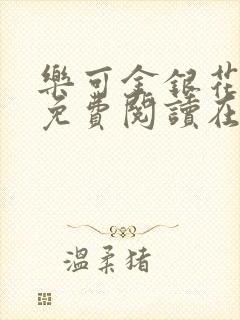 樂可金銀花
免費閱讀在
溫柔猪